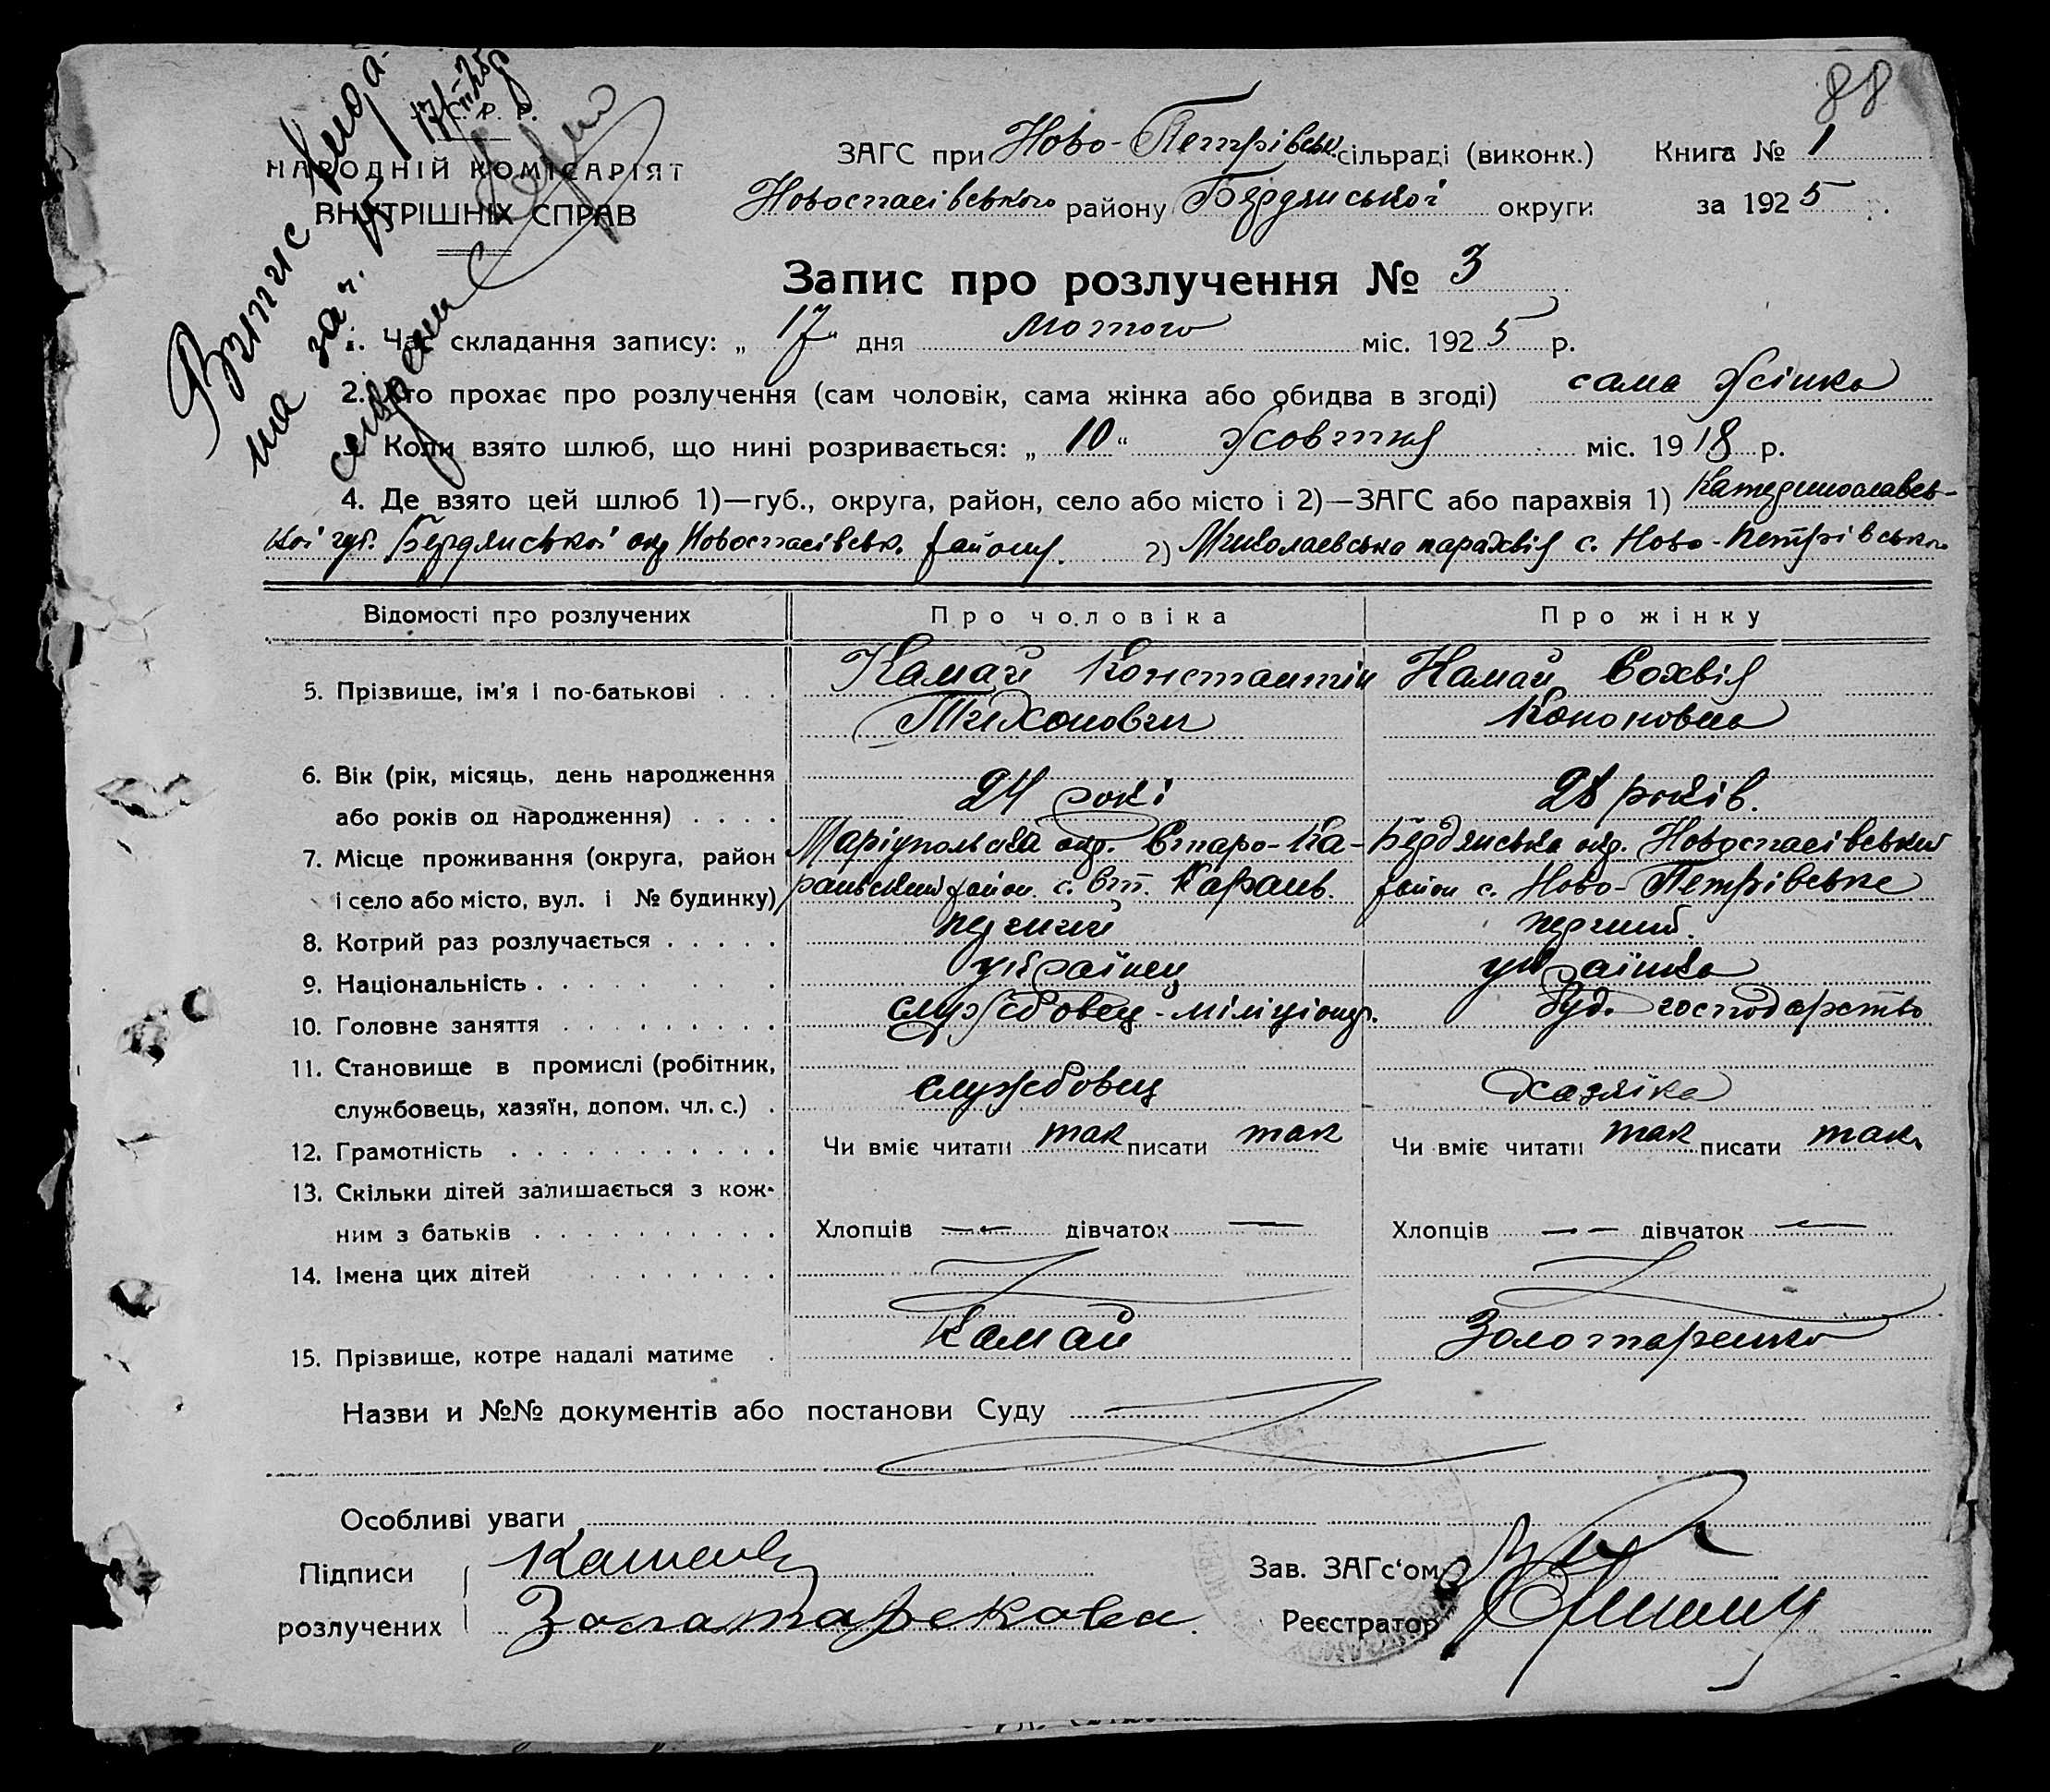 88
С. Р. Р.
НАРОДНІЙ КОМІСАРІЯТ
ВНУТРІШНІХ СПРАВ
Витис
на
ЗАГС при Ново-Петрівськ. сільраді (виконк.) Книга № 1
Новоспасівського району Бердянської округи за 1925 р.
Запис про розлучення № 3
1. Час складання запису: „ 17 " дня лютого міс. 1925 р.
2. Хто прохає про розлучення (сам чоловік, сама жінка або обидва в згоді) сама жінка
3. Коли взято шлюб, що нині розривається: „ 10 " жовтня міс. 1918 р.
4. Де взято цей шлюб 1)—губ., округа, район, село або місто і 2)—ЗАГС або парахвія 1) Катеринославсь-
кої губ. Бердянської окр Новоспасівськ. району. 2) Миколаевська парахвія с. Ново-Петрівського
Відомості про розлучених Про чоловіка Про жінку
5. Прізвище, ім'я і по-батькові . . . Камай Константін Камай Сохвія
Тихонович Кононовна
6. Вік (рік, місяць, день народження
або років од народження) . . . . 24 рокі 28 років.
7. Місце проживання (округа, район Маріупольска окр. Старо-Ка- Бердянська окр. Новоспасівський
і село або місто, вул. і № будинку) раньский район с. Ст. Карань. район с. Ново-Петрівське
8. Котрий раз розлучається . . . . . перчий перчий.
9. Національність . . . . . . українец українка
10. Головне заняття . . . . . . . . . службовец-міліціонер. буд. господарство
11. Становище в промислі (робітник,
службовець, хазяїн, допом. чл. с.) . службовец хазяїка
12. Грамотність . . . . . . . . . . . Чи вміє читати так писати так Чи вміє читати так писати так.
13. Скільки дітей залишається з кож-
ним з батьків . . . . . . . . . . Хлопців — — дівчаток — Хлопців — — дівчаток —
14. Імена цих дітей . . . . . . .
15. Прізвище, котре надалі матиме . Камай Золотаренко
Назви и №№ документів або постанови Суду
Особливі уваги
Підписи Зав. ЗАГс'ом
розлучених Реєстратор